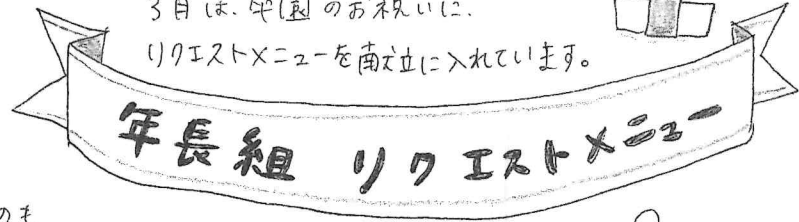 3月は、卒園のお祝いに、
リクエストメニューを献立に入れています。
年長組 リクエストメニュー